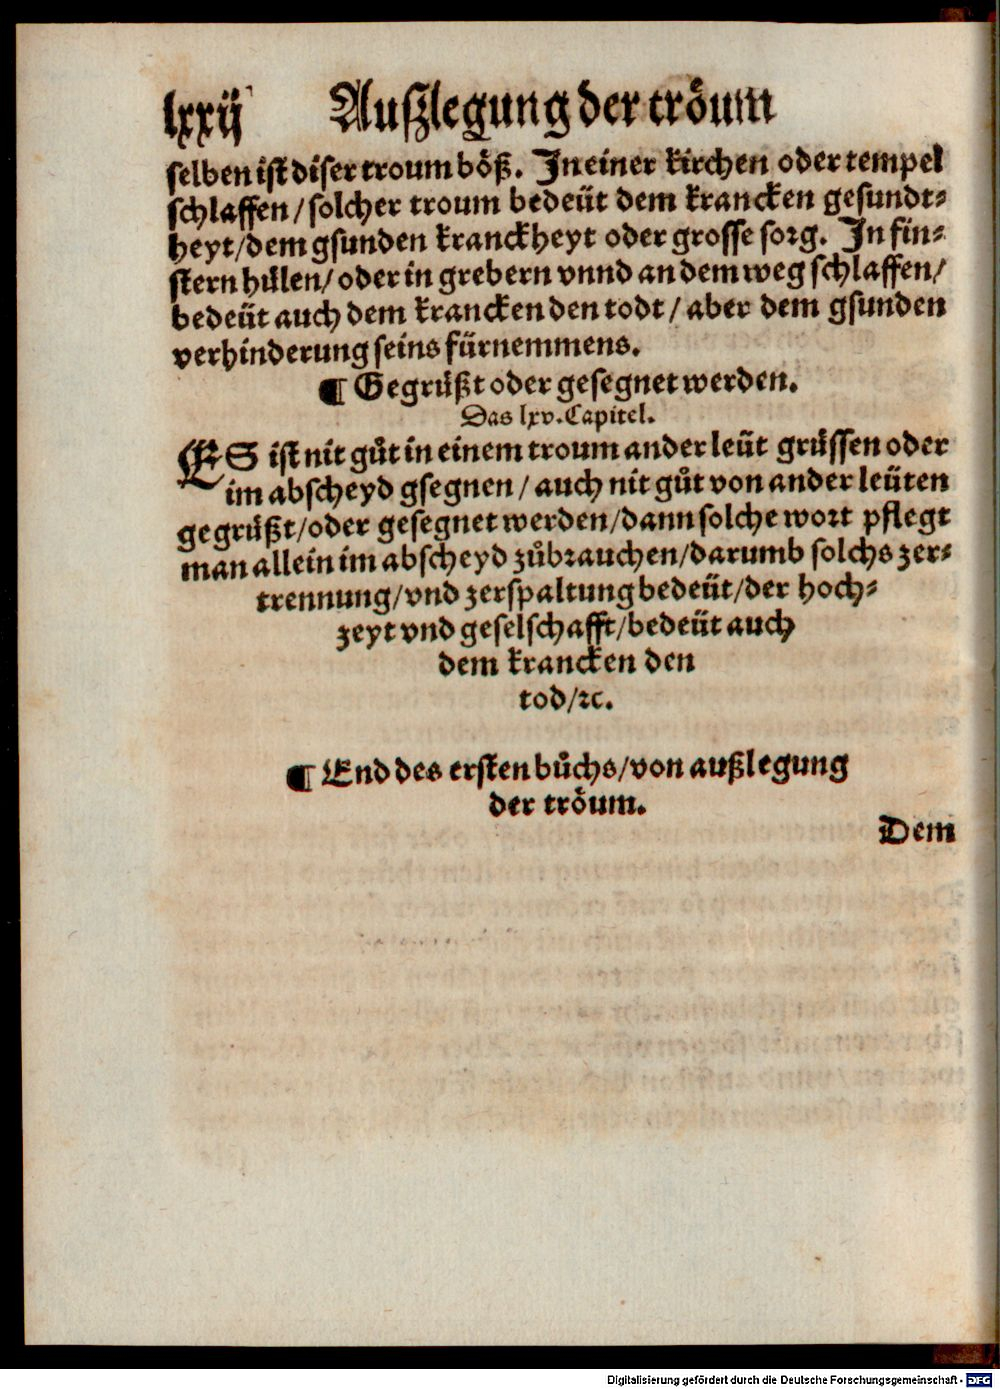 lxxij Außlegung der tröum
selben ist diser troum böß. In einer kirchen oder tempel
schlaffen/solcher troum bedeüt dem krancken gesundt⸗
heyt/dem gsunden kranckheyt oder grosse sorg. In fin⸗
stern hülen/ oder in grebern vnnd an dem weg schlaffen/
bedeüt auch dem krancken den todt/ aber dem gsunden
verhinderung seins fürnemmens.
¶ Gegrüßt oder gesegnet werden.
Das lxv. Capitel.
ES ist nit gůt in einem troum ander leüt grüssen oder
im abscheyd gsegnen/ auch nit gůt von ander leüten
gegrüßt/oder gesegnet werden/dann solche wort pflegt
man allein im abscheyd zůbrauchen/darumb solchs zer⸗
trennung/vnd zerspaltung bedeüt/der hoch⸗
zeyt vnd geselschafft/bedeüt auch
dem krancken den
tod/ꝛc.
¶ End des ersten bůchs/von außlegung
der tröum.
Dem
Digitalisierung gefördert durch die Deutsche Forschungsgemeinschaft - DFG